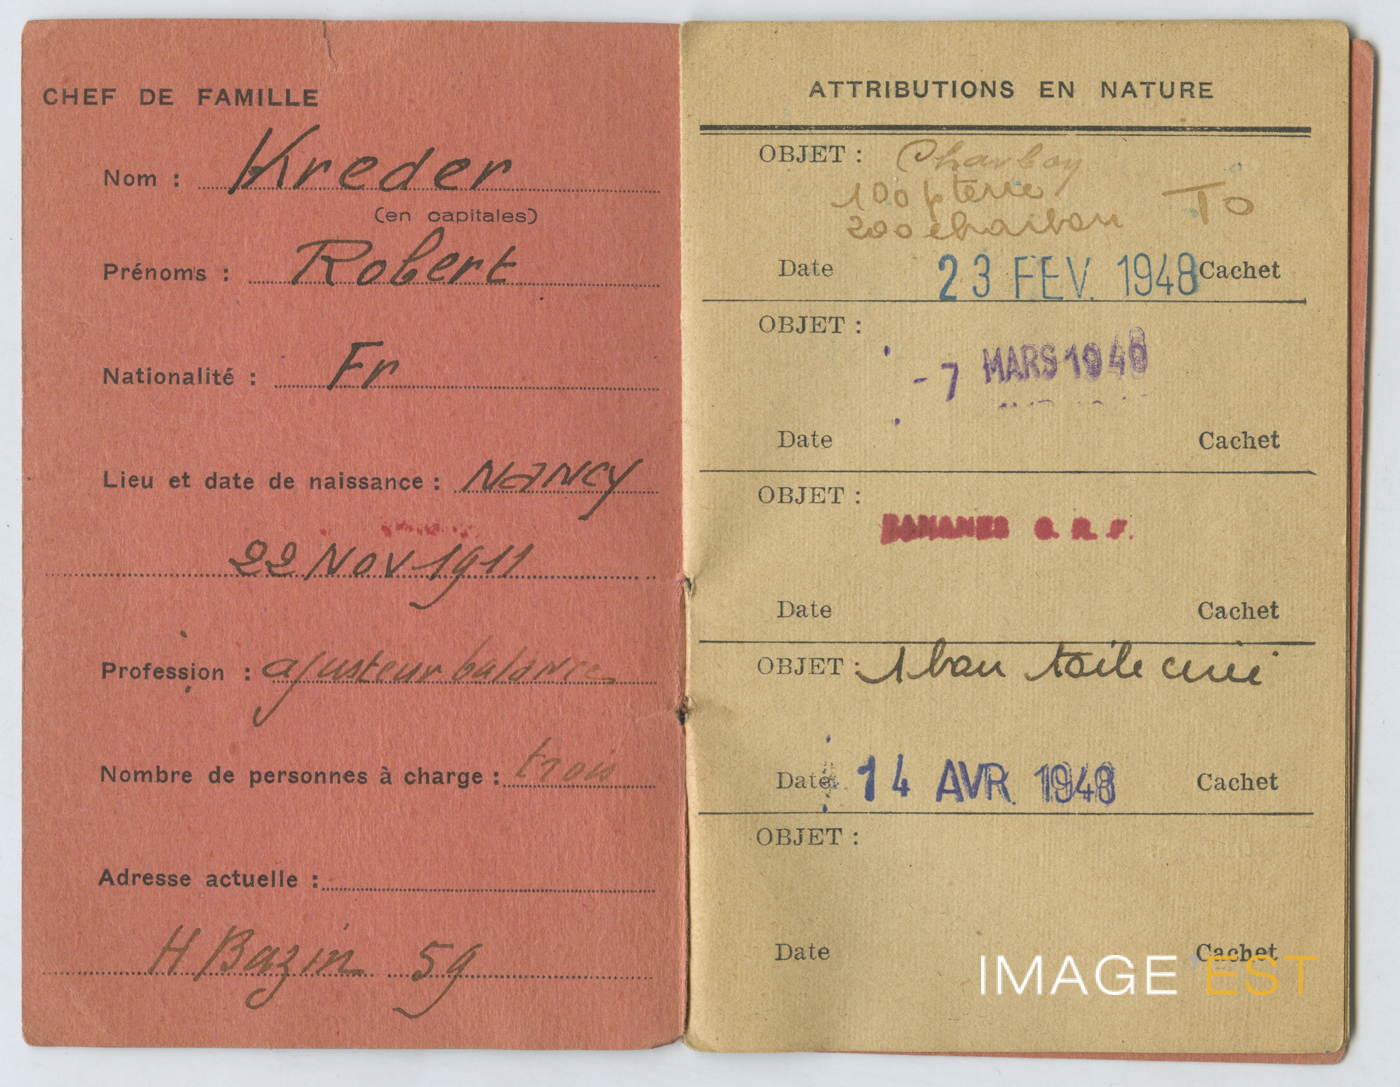 CHEF DE FAMILLE
Nom : Kreder
(en capitales)
Prénoms : Robert
Nationalité : Fr
Lieu et date de naissance : NANCY
22 Nov 1911
Profession : ajusteur balance
Nombre de personnes à charge : trois
Adresse actuelle :
H Bazin 59
ATTRIBUTIONS EN NATURE
OBJET : Charbon
100 p terre
200 charbon To
Date 23 FEV. 1948 Cachet
OBJET :
- 7 MARS 1948
Date Cachet
OBJET :
BANANES G. R. F.
Date Cachet
OBJET : 1 bon toile cirée
Date 14 AVR. 1948 Cachet
OBJET :
Date Cachet
IMAGE EST